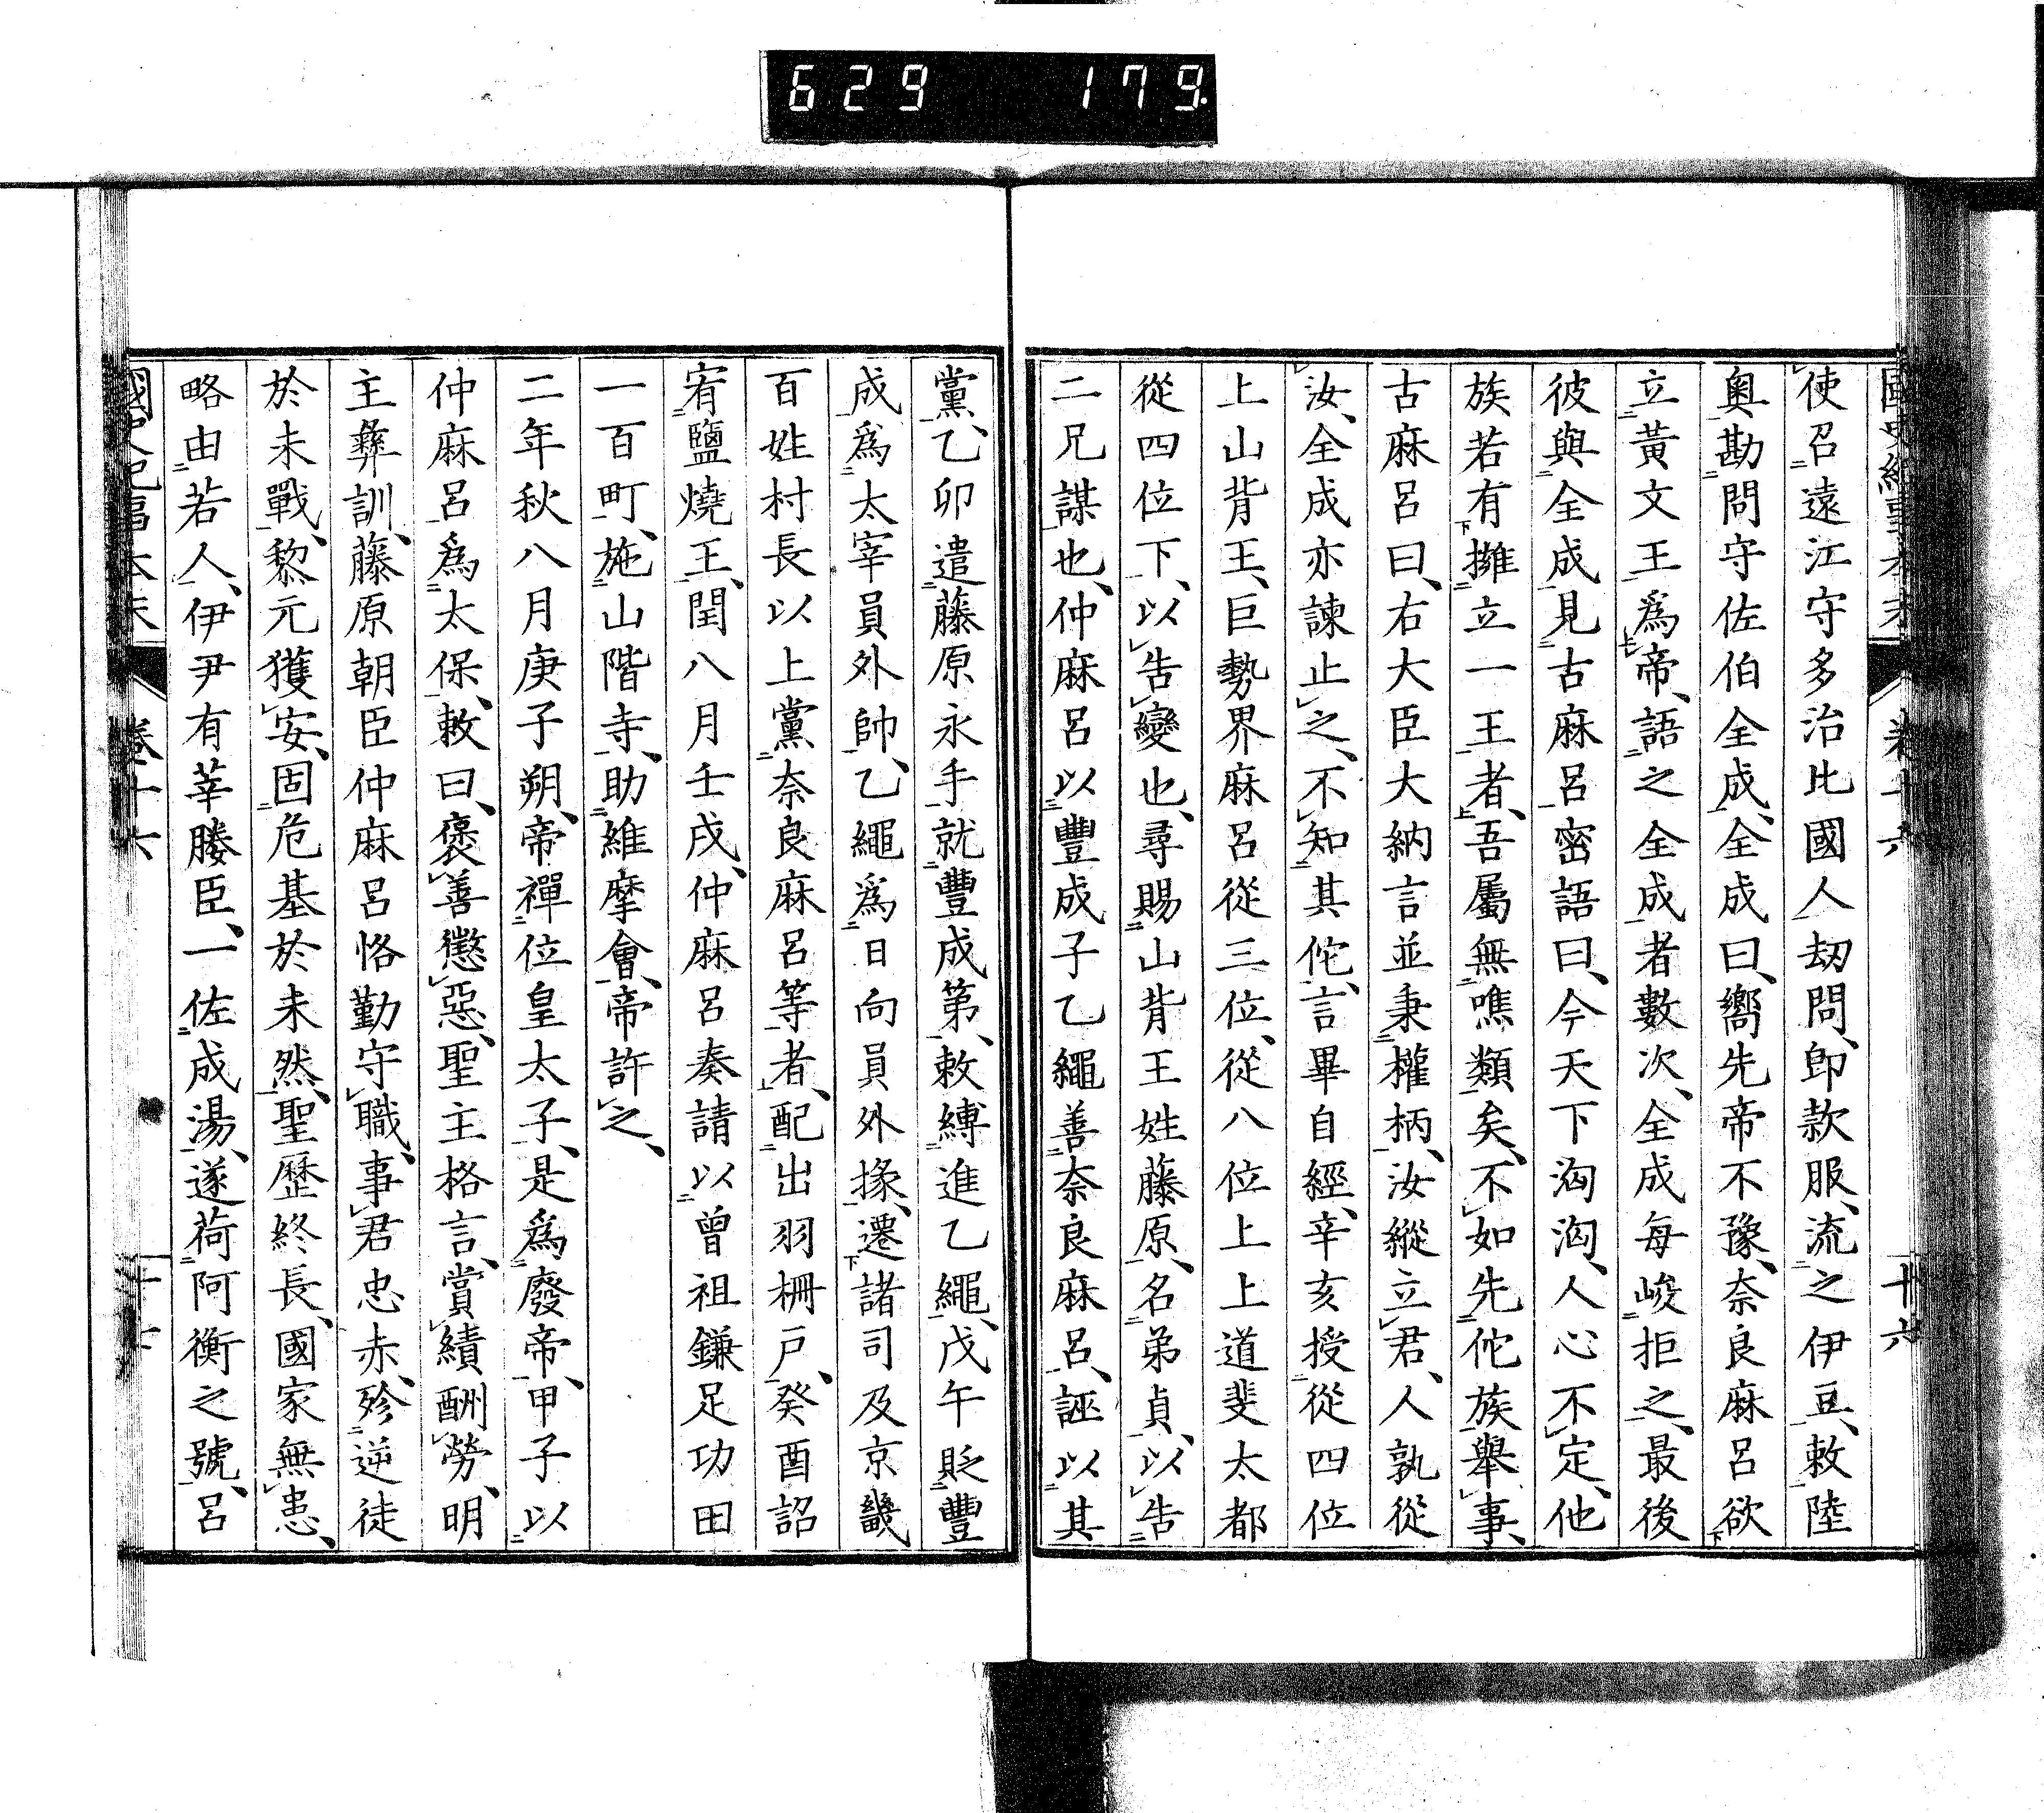 629 179.
國史紀事本末 卷十六 十六
使召遠江守多治比國人劫問、卽款服、流之伊豆、敕陸
奧勘問守佐伯全成、全成曰、嚮先帝不豫、奈良麻呂欲
立黃文王爲帝、語之全成者數次、全成每峻拒之、最後
彼與全成見古麻呂密語曰、今天下洶洶、人心不定、他
族若有擁立一王者、吾屬無噍類矣、不如先佗族舉事、
古麻呂曰、右大臣大納言並秉權柄、汝縱立君、人孰從
汝、全成亦諫止之、不知其佗、言畢自經、辛亥授從四位
上山背王、巨勢界麻呂從三位、從八位上上道斐太都
從四位下、以告變也、尋賜山背王姓藤原、名弟貞、以告
二兄謀也、仲麻呂以豐成子乙繩善奈良麻呂、誣以其
黨、乙卯遣藤原永手就豐成第、敕縛進乙繩、戊午貶豐
成爲太宰員外帥、乙繩爲日向員外掾、遷諸司及京畿
百姓村長以上黨奈良麻呂等者、配出羽柵戶、癸酉詔
宥鹽燒王、閏八月壬戌、仲麻呂奏請以曾祖鎌足功田
一百町、施山階寺、助維摩會、帝許之、
二年秋八月庚子朔、帝禪位皇太子、是爲廢帝、甲子以
仲麻呂爲太保、敕曰、褒善懲惡、聖主格言、賞績酬勞、明
主彝訓、藤原朝臣仲麻呂恪勤守職、事君忠赤、殄逆徒
於未戰、黎元獲安、固危基於未然、聖歷終長、國家無恙、
略由若人、伊尹有莘媵臣、一佐成湯、遂荷阿衡之號、呂
國史紀事本末 卷十六 十七